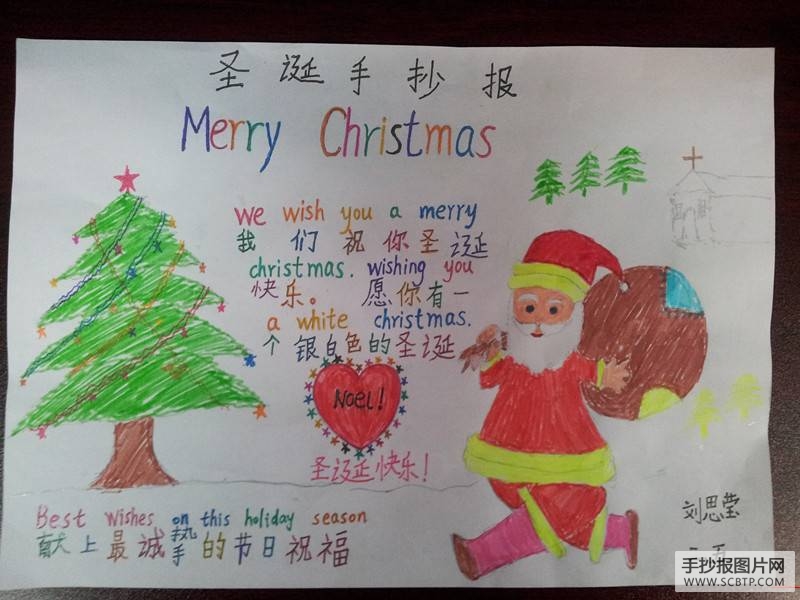 圣诞手抄报
Merry Christmas
we wish you a merry
我们祝你圣诞
christmas. wishing you
快乐。愿你有一
a white christmas.
个银白色的圣诞
Noel!
圣诞快乐!
Best wishes on this holiday season
献上最诚挚的节日祝福
刘思莹
手抄报图片网
WWW.SCBTP.COM